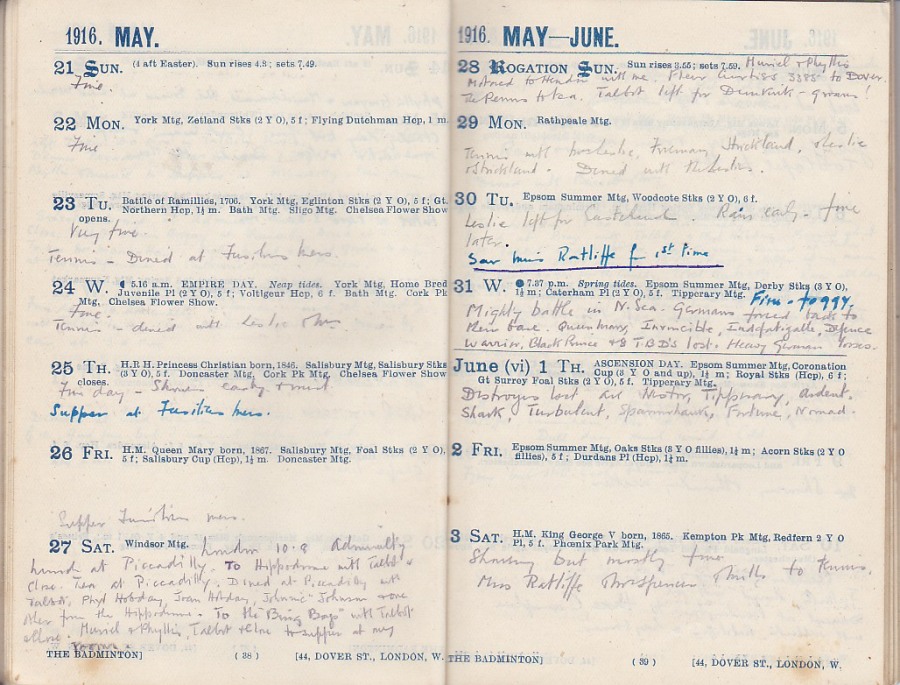 1916. MAY.
21 SUN. (4 aft Easter). Sun rises 4.3; sets 7.49.
Fine.
22 MON. York Mtg, Zetland Stks (2 Y O), 5 f; Flying Dutchman Hcp, 1 m
Fine
23 TU. Battle of Ramillies, 1706. York Mtg, Eglinton Stks (2 Y O), 5 f; Gt.
Northern Hcp, 1¼ m. Bath Mtg. Sligo Mtg. Chelsea Flower Show
opens.
Very fine.
Tennis - Dined at Fusiliers mess.
24 W. 5.16 a.m. EMPIRE DAY. Neap tides. York Mtg, Home Bred
Juvenile Pl (2 Y O), 5 f; Voltigeur Hcp, 6 f. Bath Mtg. Cork Pk
Mtg, Chelsea Flower Show.
Fine.
Tennis - dined with Leslie
25 TH. H.R.H. Princess Christian born, 1846. Salisbury Mtg, Salisbury Stks
(3 Y O), 5 f. Doncaster Mtg. Cork Pk Mtg, Chelsea Flower Show
closes.
Fine day - Shower early
Supper at Fusiliers mess.
26 FRI. H.M. Queen Mary born, 1867. Salisbury Mtg, Foal Stks (2 Y O),
5 f; Salisbury Cup (Hcp), 1¼ m. Doncaster Mtg.
Supper Fusiliers mess.
27 SAT. Windsor Mtg. London 10.8 Admiralty
lunch at Piccadilly. To Hippodrome with Talbot &
Clone. Tea at Piccadilly. Dined at Piccadilly with
Talbot, Phyl Hobday, Joan Hobday, "Johnnie" Johnson & one
other from the Hippodrome. To the "Bing Boys" with Talbot
& Clone. Muriel & Phyllis, Talbot & Clone to supper at my
rooms.
THE BADMINTON] ( 38 ) [44, DOVER ST., LONDON, W.
1916. MAY—JUNE.
28 ROGATION SUN. Sun rises 3.55; sets 7.59. Muriel & Phyllis
motored to Hendon with me. Flew Curtiss 3385 to Dover.
Talbot left for Dunkirk -
29 MON. Rathpeale Mtg.
Tennis with Leslie, Strickland,
Strickland. Dined with
30 TU. Epsom Summer Mtg, Woodcote Stks (2 Y O), 6 f.
Leslie left for . Rain early - fine
later.
Saw Miss Ratliffe for 1st time
31 W. 7.37 p.m. Spring tides. Epsom Summer Mtg, Derby Stks (3 Y O),
1½ m; Caterham Pl (2 Y O), 5 f. Tipperary Mtg. Fine - foggy.
Mighty battle in N. Sea. Germans forced back to
their base. Queen Mary, Invincible, Indefatigable, Defence
Warrior, Black Prince & 8 T.B.D's lost. Heavy German losses.
June (vi) 1 TH. ASCENSION DAY. Epsom Summer Mtg, Coronation
Cup (3 Y O and up), 1½ m; Royal Stks (Hcp), 6 f;
Gt Surrey Foal Stks (2 Y O), 5 f. Tipperary Mtg.
Destroyers lost are Nestor, Tipperary, Ardent,
Shark, Turbulent, Sparrowhawk, Fortune, Nomad.
2 FRI. Epsom Summer Mtg, Oaks Stks (3 Y O fillies), 1½ m; Acorn Stks (2 Y O
fillies), 5 f; Durdans Pl (Hcp), 1½ m.
3 SAT. H.M. King George V born, 1865. Kempton Pk Mtg, Redfern 2 Y O
Pl, 5 f. Phoenix Park Mtg.
Showery but mostly fine
Miss Ratliffe Mrs Spencer Phillips to tennis.
THE BADMINTON] ( 39 ) [44, DOVER ST., LONDON, W.